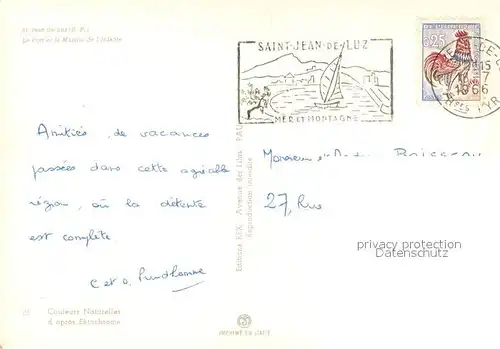 ST-JEAN DE LUZ (B. P.)
Le Port et la Maison de l'Infante
SAINT-JEAN-DE-LUZ
MER ET MONTAGNE
0,25
1966
Amitiés de vacances
passées dans cette agréable
région, où la détente
est complète
C et O. Prudhomme
Couleurs Naturelles
d'après Ektachrome
Avenue des Lilas PAU
Reproduction interdite
Monsieur et
27, Rue
privacy protection
Datenschutz